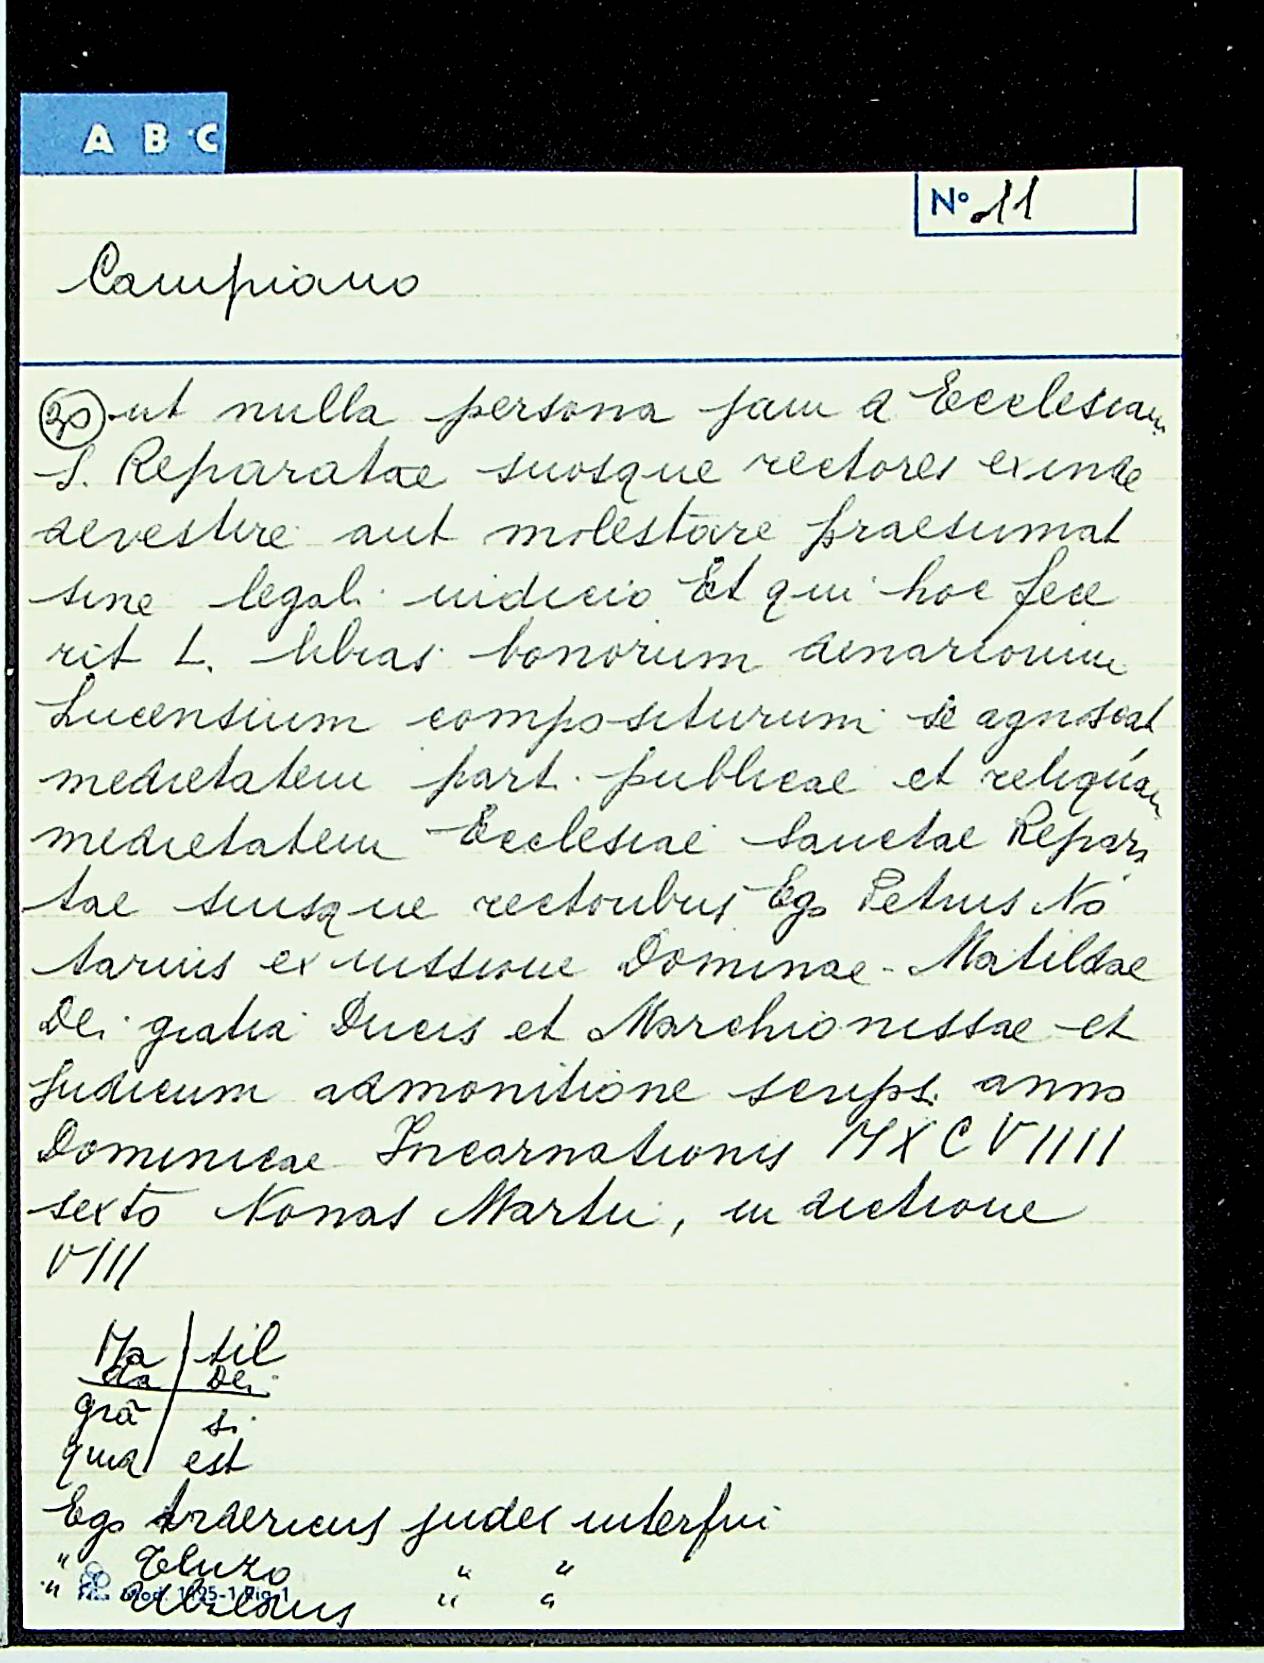 A B C
N° 11
Campiano
20 ut nulla persona jam d Ecclesiam
S. Reparatae suosque rectores exinde
devestire aut molestare praesumat
sine legali iudicio Et qui hoc fece
rit L. libras bonorum denariorum
Lucensium compositurum se agnoscat
medietatem part. publicae et reliquam
medietatem Ecclesiae Sanctae Repara
tae suisque rectoribus Ego Petrus No
tarius ex iussione Dominae Matildae
Dei gratia Ducis et Marchionissae et
Judicum admonitione scrips. anno
Dominicae Incarnationis MXCVIIII
sexto Nonas Martii, indictione
VIII
Ma | til
da | Dei
grã | si
quid est
Ego Ardericus judex interfui
" Teuzo " "
" Ubaldus " "